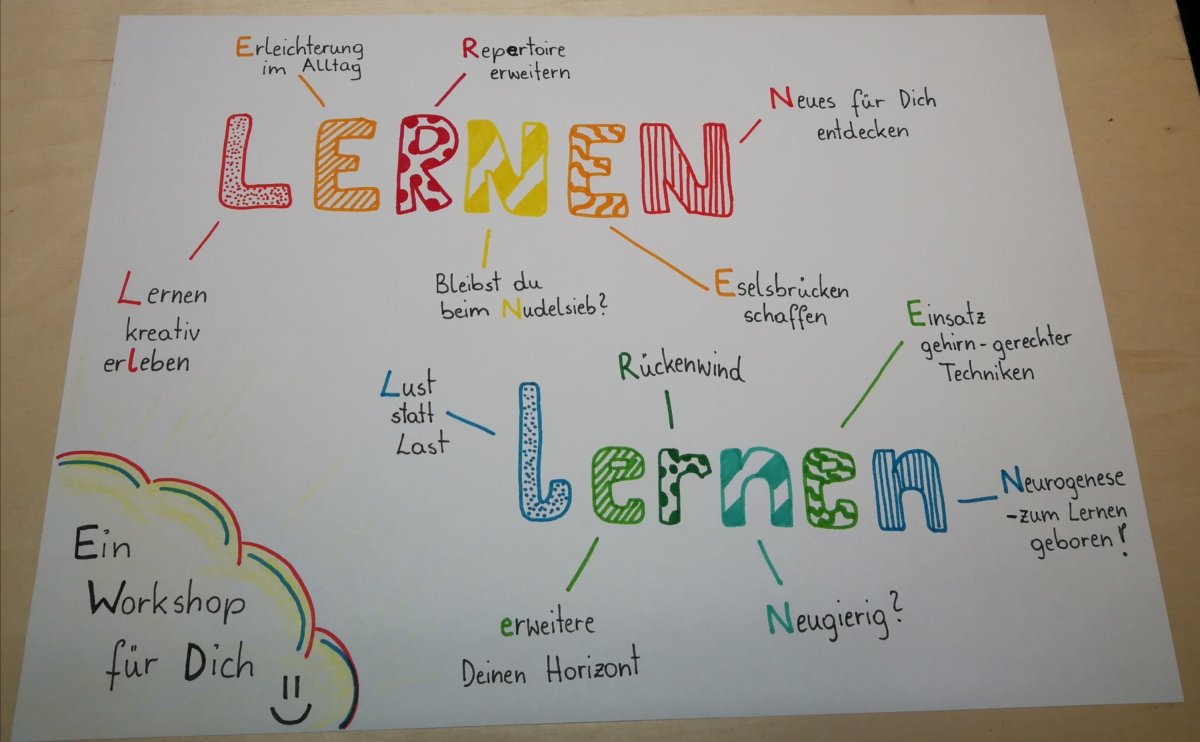 Erleichterung
im Alltag
Repertoire
erweitern
Neues für Dich
entdecken
LERNEN
Lernen
kreativ
erleben
Bleibst du
beim Nudelsieb?
Eselsbrücken
schaffen
Einsatz
gehirn-gerechter
Techniken
Rückenwind
Lust
statt
Last
lernen
Neurogenese
-zum Lernen
geboren!
erweitere
Deinen Horizont
Neugierig?
Ein
Workshop
für Dich